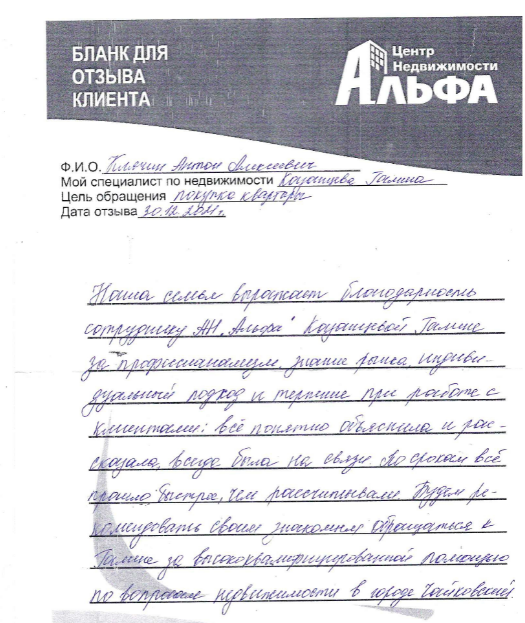 БЛАНК ДЛЯ
ОТЗЫВА
КЛИЕНТА
Центр
Недвижимости
АЛЬФА
Ф.И.О. Антон Алексеевич
Мой специалист по недвижимости Галина
Цель обращения покупка квартиры
Дата отзыва 30.12.2011г.
Наша семья выражает благодарность
сотруднику АН "Альфа" Галине
за профессионализм, знание рынка, индиви-
дуальный подход и терпение при работе с
клиентами: всё понятно объяснила и рас-
сказала, всегда была на связи. По срокам всё
прошло быстрее, чем рассчитывали. Будем ре-
комендовать своим знакомым обращаться к
Галине за высококвалифицированной помощью
по вопросам недвижимости в городе Чайковский.